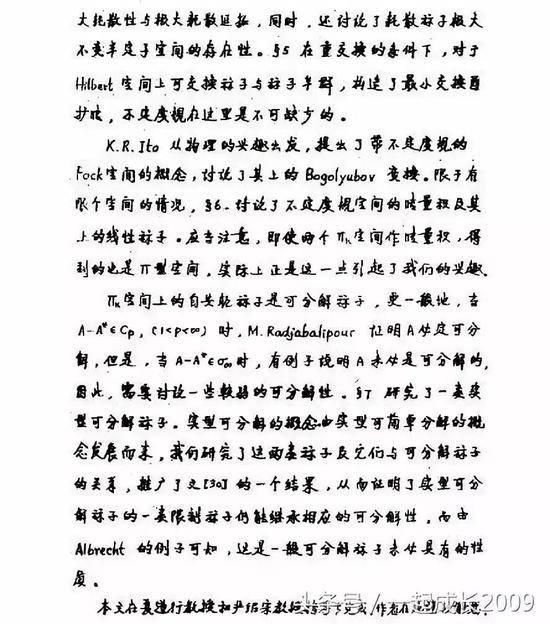 大耗散性与极大耗散延拓,同时,还讨论了耗散祘子极大
不变半定子空间的存在性。§5 在重交换的条件下,对于
Hilbert 空间上可交换祘子与祘子半群,构造了最小交换酉
扩张,不定度规在这里是不可缺少的。
K.R.Ito 从物理的兴趣出发,提出了带不定度规的
Fock空间的概念,讨论了其上的 Bogolyubov 变换。限于有
限个空间的情况,§6.讨论了不定度规空间的张量积及其
上的线性祘子。应当注意,即使两个 Πκ空间作张量积,得
到的也是 Π型空间,实际上正是这一点引起了我们的兴趣.
Πκ空间上的自共轭祘子是可分解祘子,更一般地,当
A-A*∈Cp,(1<p<∞) 时,M.Radjabalipour 证明A必是可分
解,但是,当 A-A*∈σ∞时,有例子说明A未必是可分解的,
因此,需要讨论一些较弱的可分解性。§7 研究了一类实
型可分解祘子。实型可分解的概念由实型可简单分解的概
念发展而来,我们研究了这两类祘子及它们与可分解祘子
的关系,推广了文[30]的一个结果,从而证明了实型可分
解祘子的一类限制祘子仍能继承相应的可分解性,而由
Albrecht 的例子可知,这是一般可分解祘子未必具有的性
质。
本文在夏道行教授和严绍宗教授指导下完成,作者在
头条号/一起成长2009